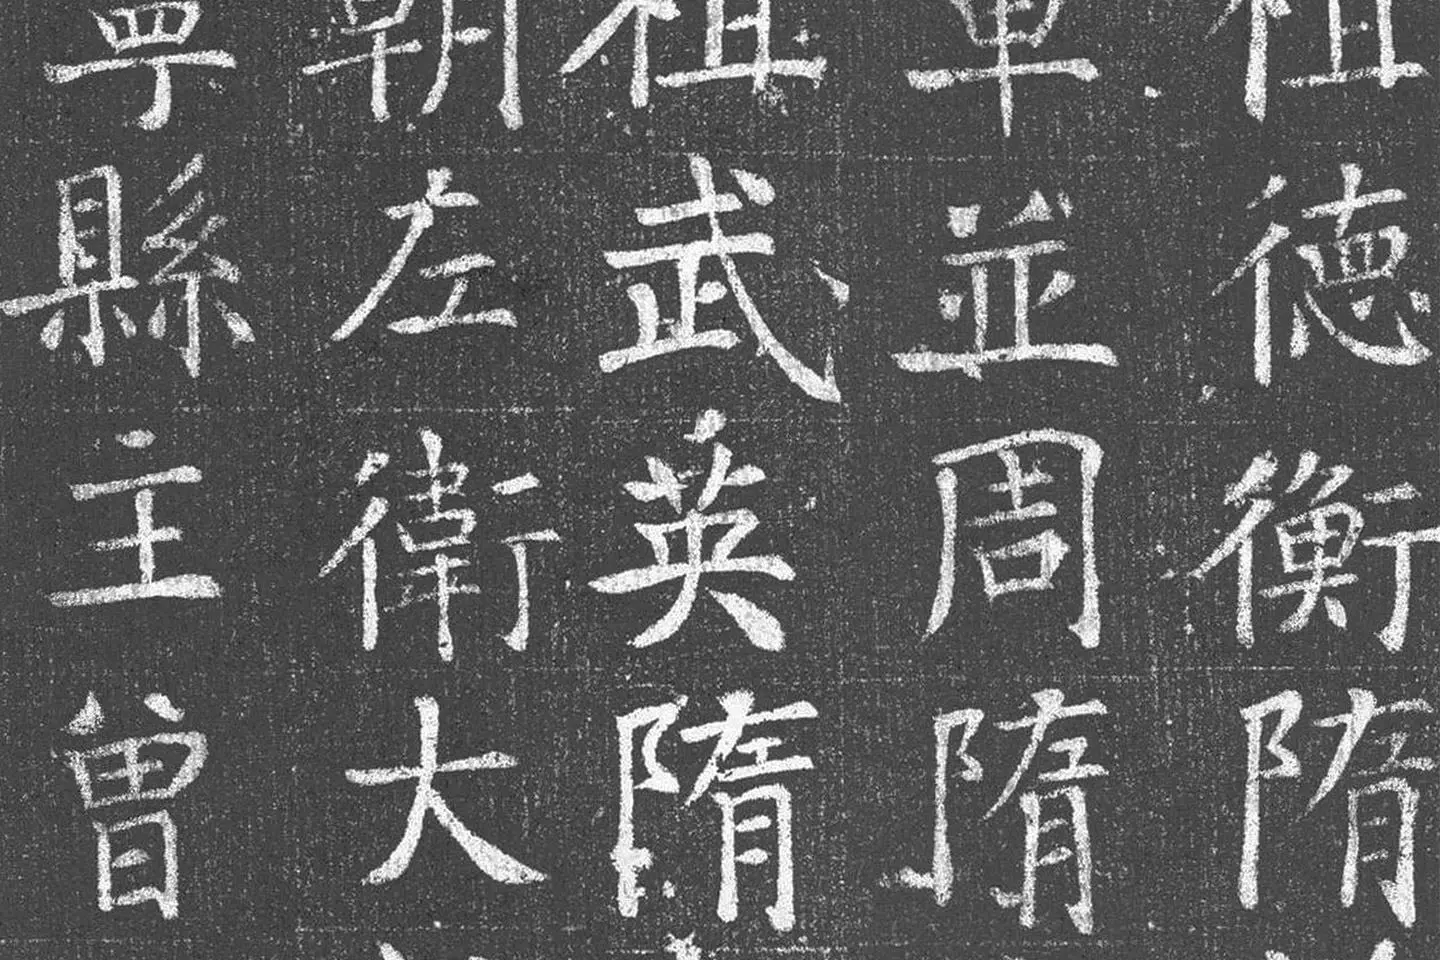 祖德衡隋
車並周隋
祖武英隋
朝左衛大
寧縣主曾